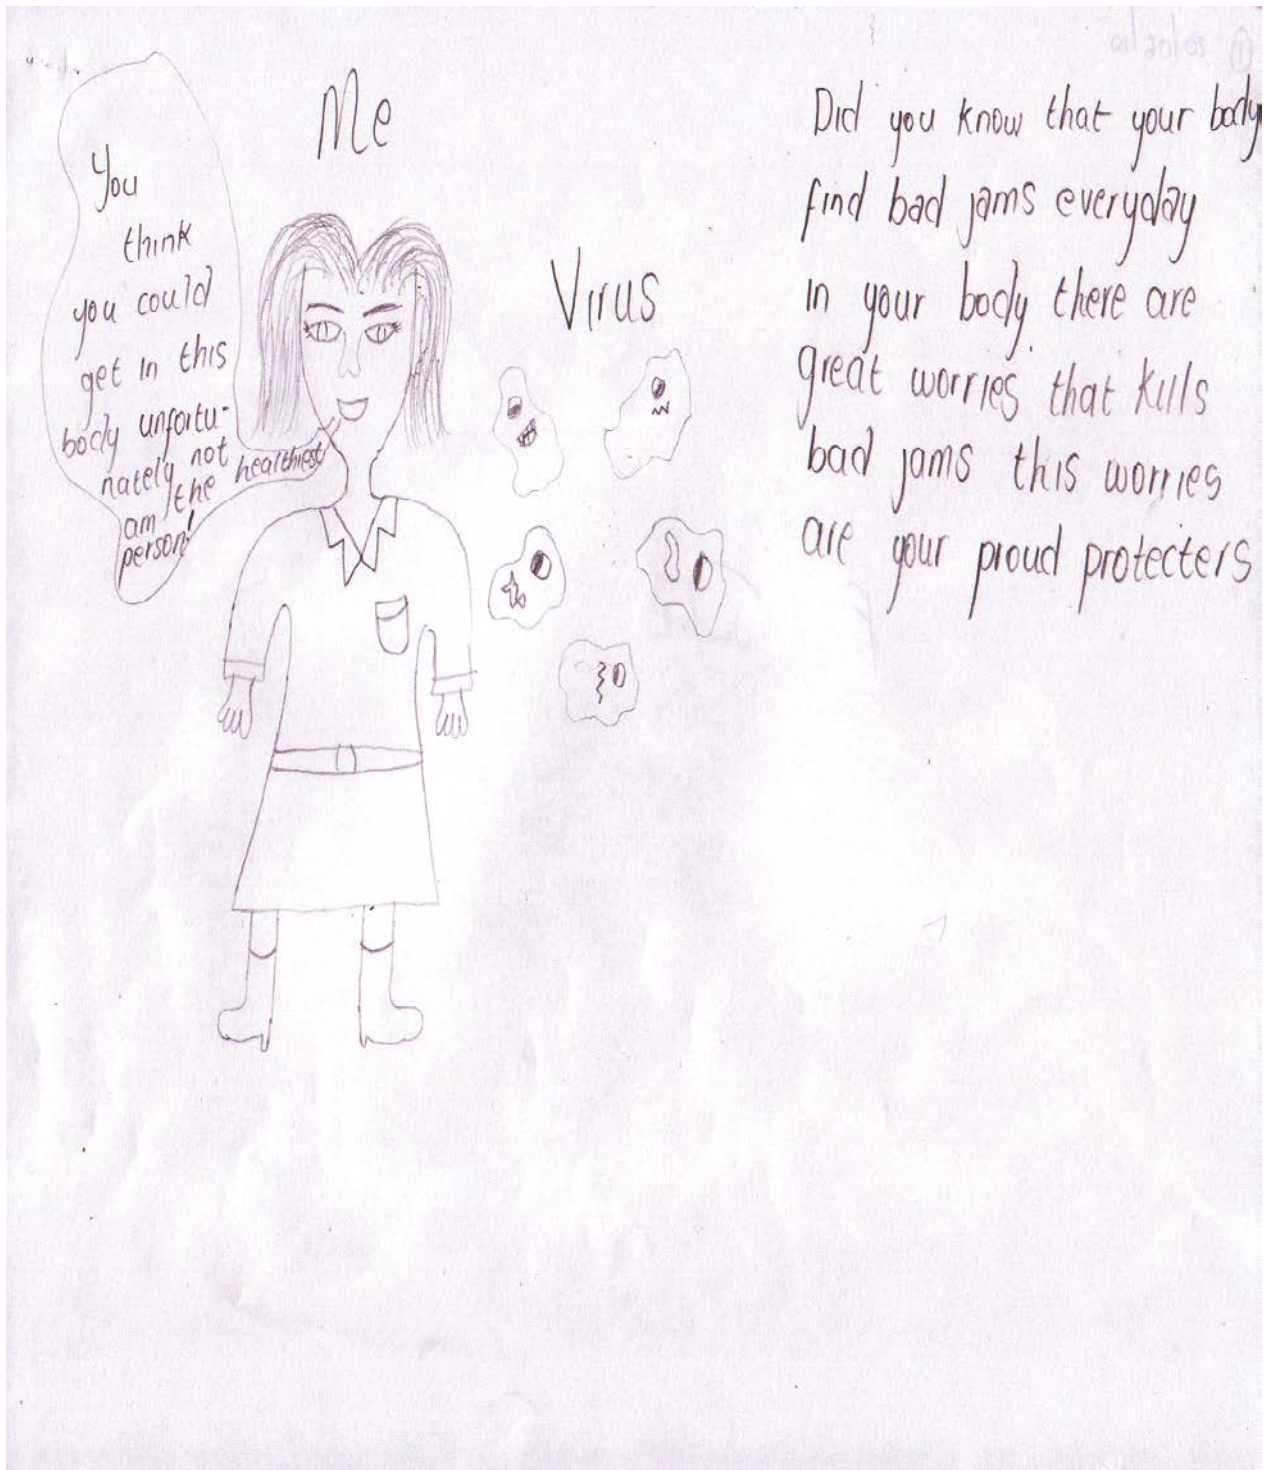 Me
You
think
you could
get in this
body unfortu-
nately not
am the healthiest
person!
Virus
Did you know that your body
find bad jams everyday
in your body there are
great worries that kills
bad jams this worries
are your proud protecters